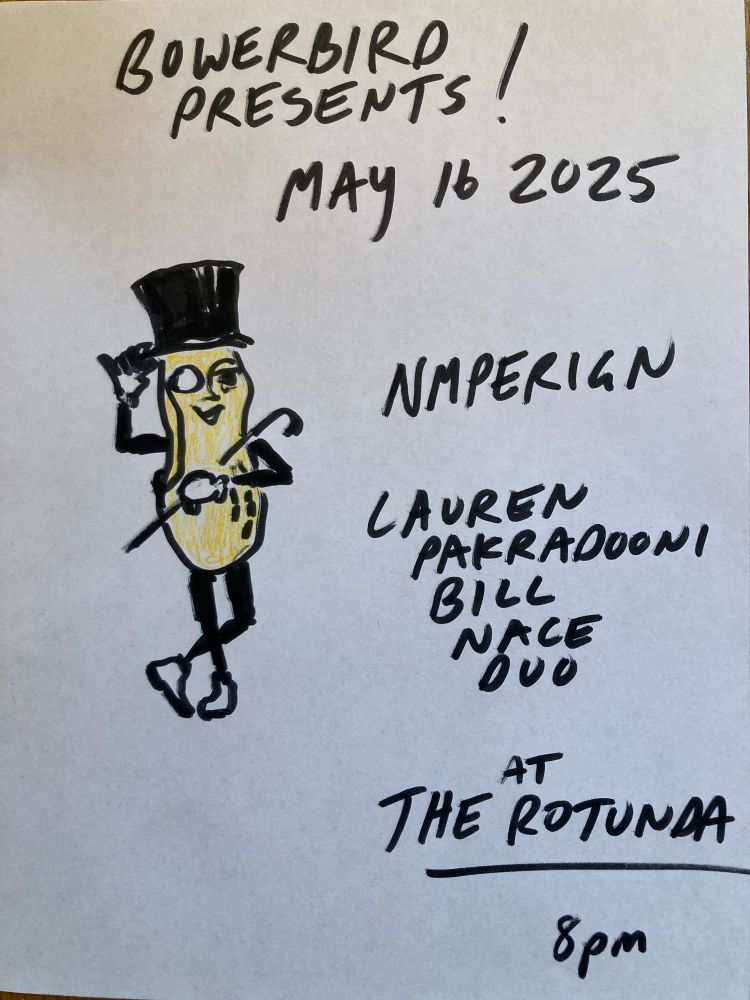 BOWERBIRD
PRESENTS!
MAY 16 2025
NMPERIGN
LAUREN
PAKRADOONI
BILL
NACE
DUO
AT
THE ROTUNDA
8pm